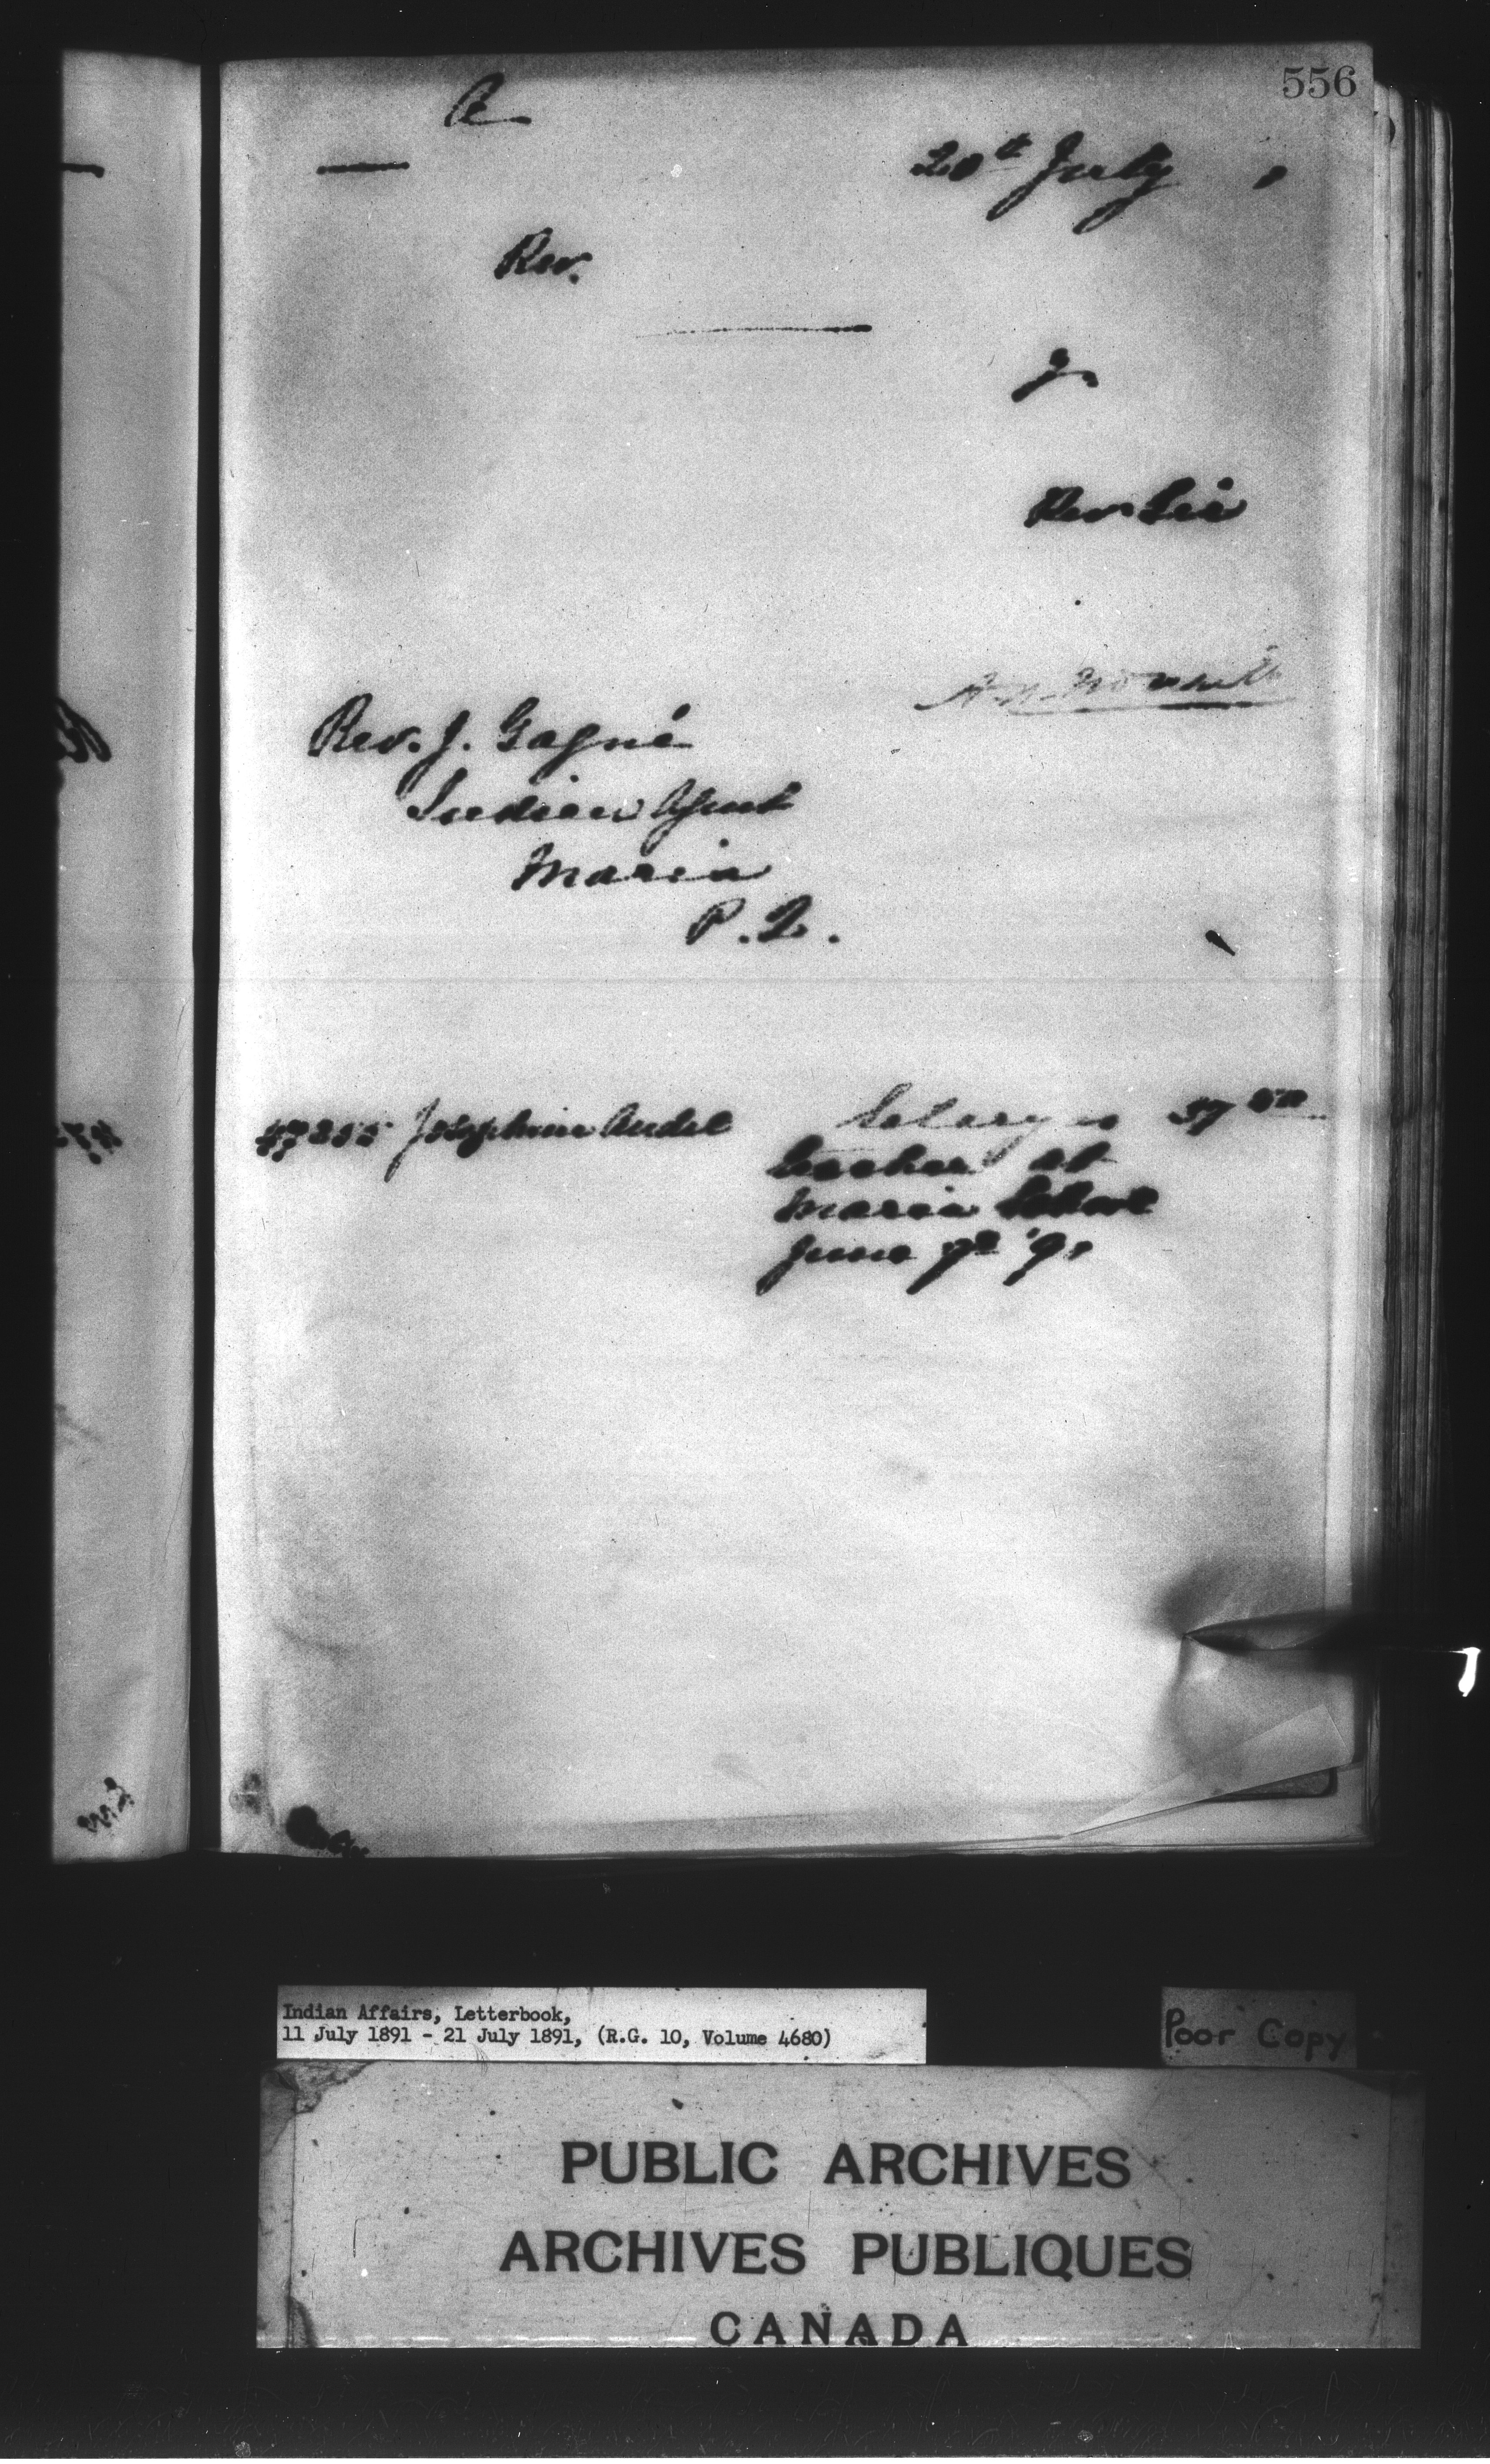 556
A
20th July,
Rev.
J.
Rev. Sir
Rev. J. Gagné
Indian Agent
Maria
P.Q.
Josephine Audet Salary as 37 50
teacher at
Maria School
June qr '91
Indian Affairs, Letterbook,
11 July 1891 - 21 July 1891, (R.G. 10, Volume 4680)
Poor Copy
PUBLIC ARCHIVES
ARCHIVES PUBLIQUES
CANADA